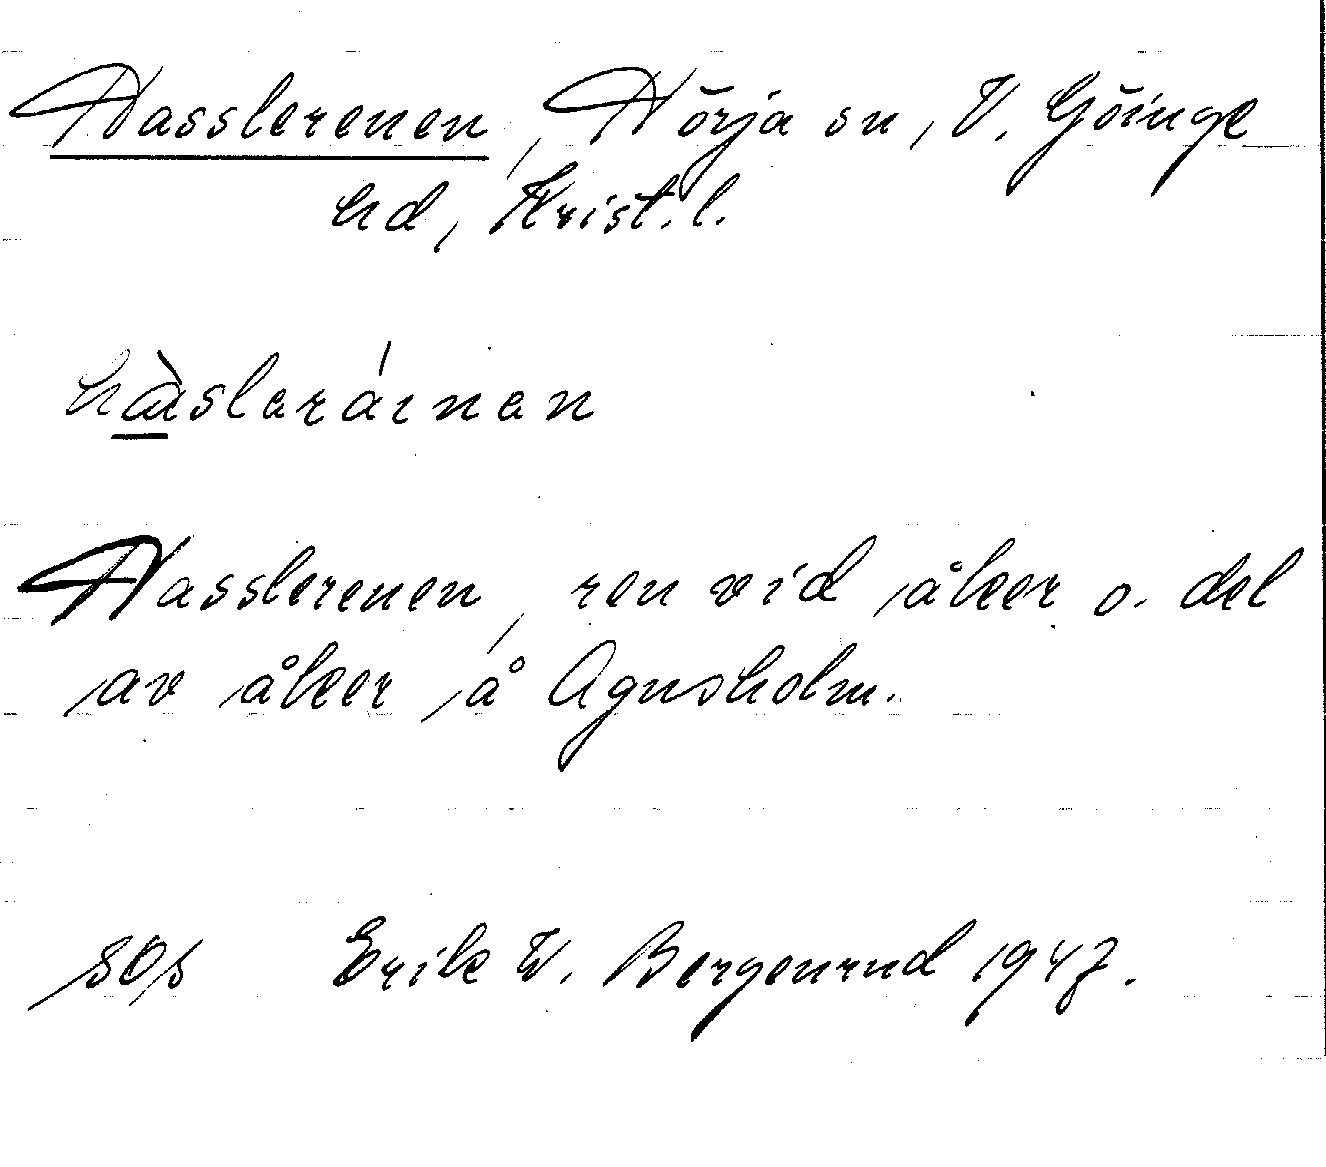 Hasslerenen, Hörja sn, V. Göinge
hd, Krist. l.
hàslaráinan
Hasslerenen, ren vid åker o. del
av åker å Agnsholm.
Erik W. Bergenrud 1947.